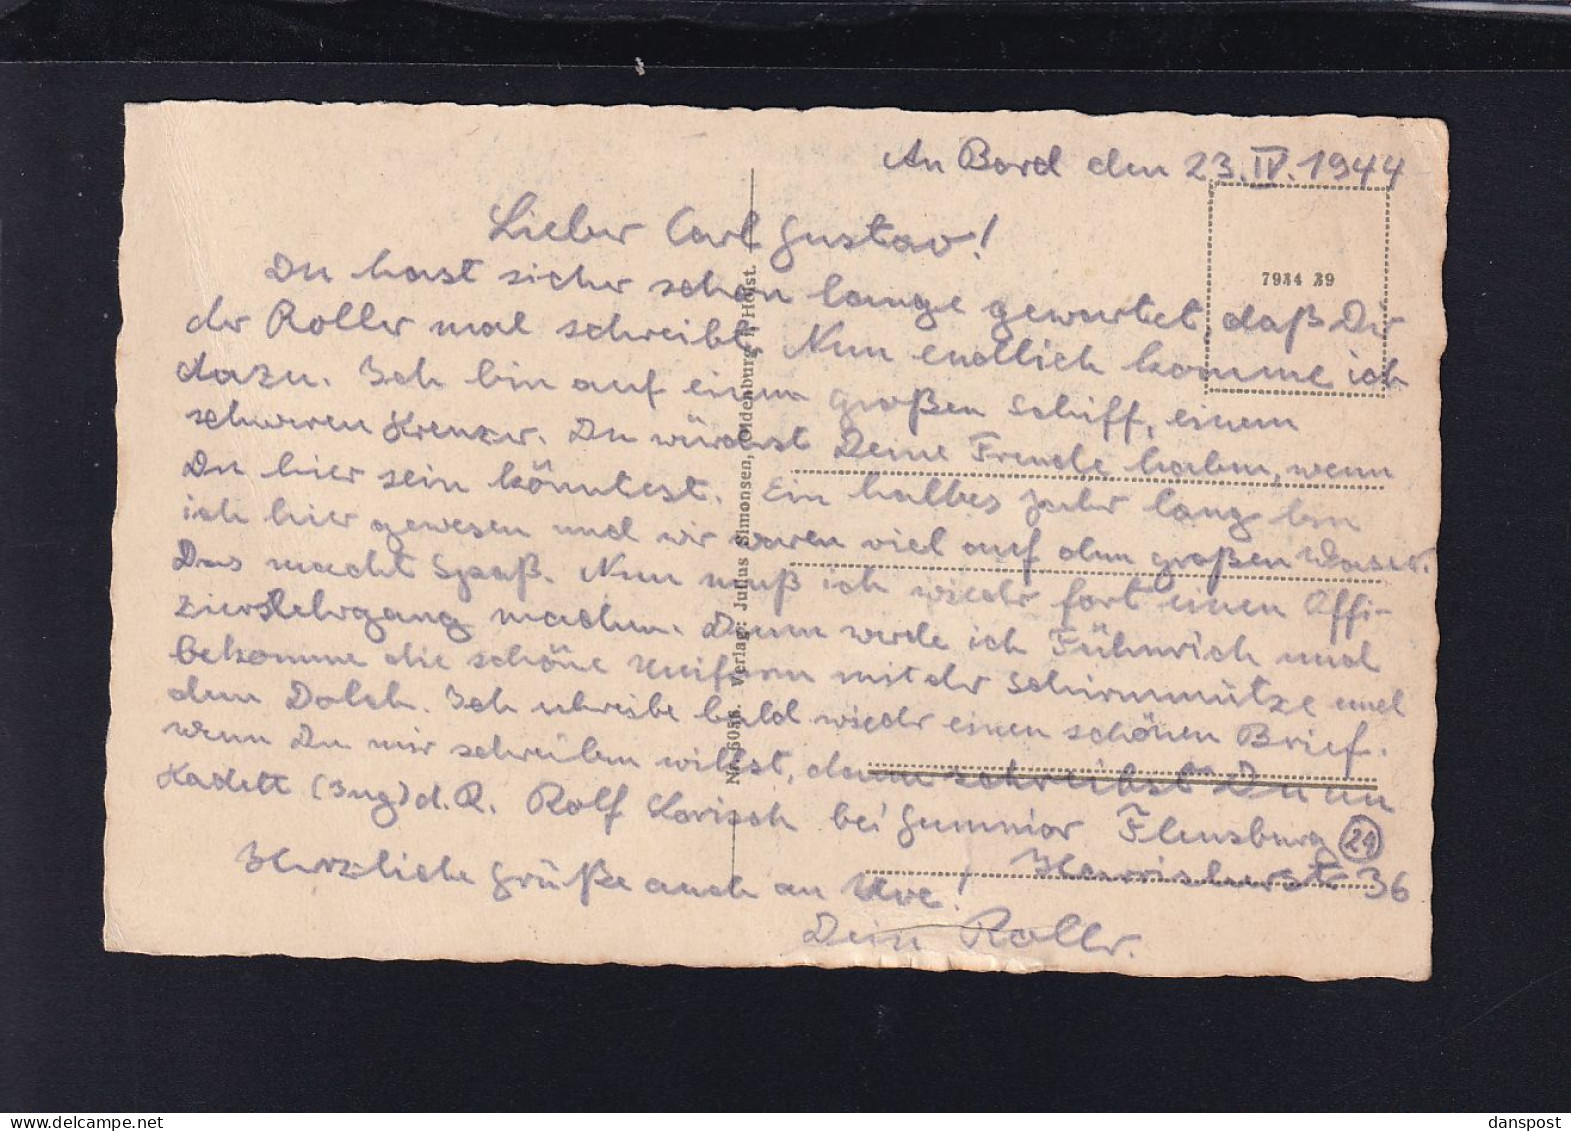 An Bord den 23.IV.1944
Lieber Carl Gustav!
Du hast sicher schon lange gewartet, daß Dir
der Roller mal schreibt. Nun endlich komme ich
dazu. Ich bin auf einem großen Schiff, einem
schweren Kreuzer. Du würdest Deine Freude haben, wenn
Du hier sein könntest. Ein halbes Jahr lang bin
ich hier gewesen und wir waren viel auf dem großen Wasser.
Das macht Spaß. Nun muß ich wieder fort einen Offi-
zierslehrgang machen. Dann werde ich Fähnrich und
bekomme die schöne Uniform mit der Schirmmütze und
dem Dolch. Ich schreibe bald wieder einen schönen Brief.
wenn Du mir schreiben willst, dann schreibst Du an
Kadett (Ing) d. R. Rolf Lorisch bei Flensburg 24
36
Herzliche Grüße auch an Uwe!
Dein Roller.
7934 39
Nr. Verlag: Julius Simonsen, Oldenburg i. Holst.
danspost